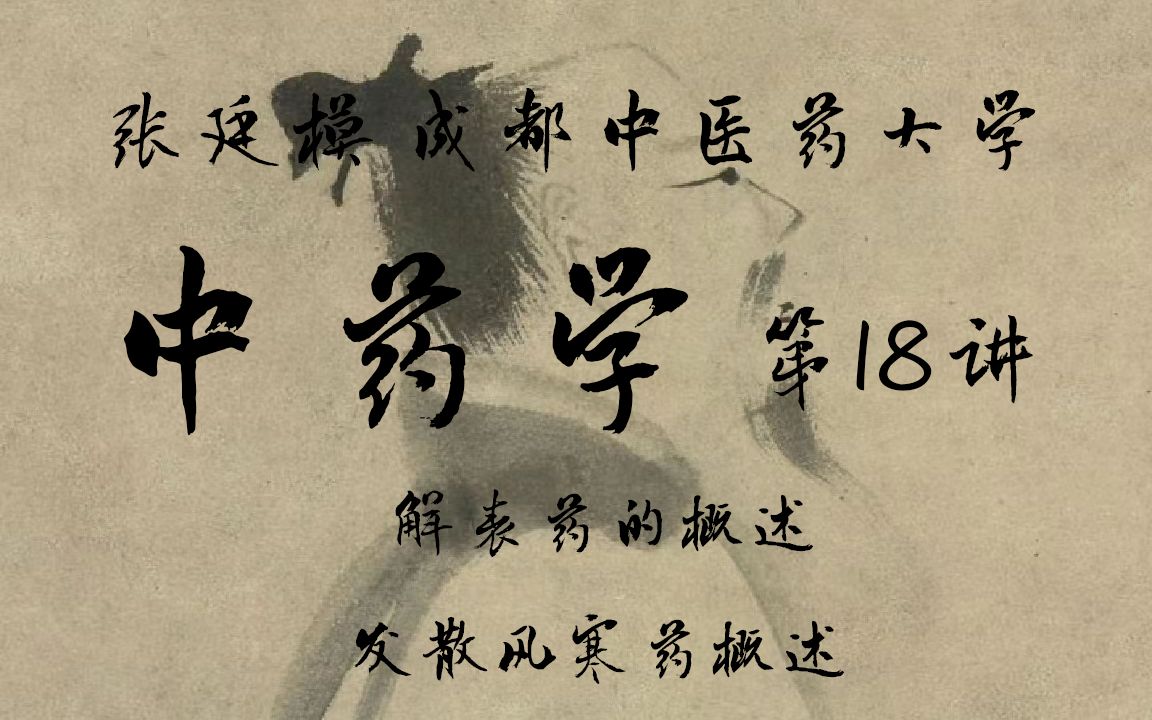 张廷模成都中医药大学
中药学 第18讲
解表药的概述
发散风寒药概述